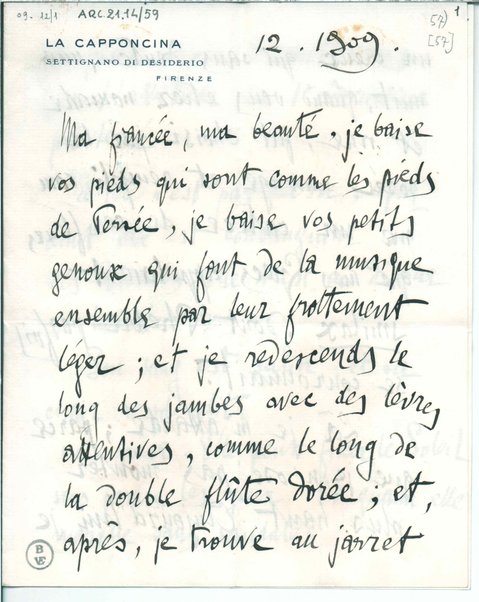 09. 12/1 ARC.21.14/59 57) 1
[57]
LA CAPPONCINA
SETTIGNANO DI DESIDERIO
FIRENZE
12. 1909.
Ma fiancée, ma beauté, je baise
vos pieds qui sont comme les pieds
de Persée, je baise vos petits
genoux qui font de la musique
ensemble par leur frottement
léger ; et je redescends le
long des jambes avec des lèvres
attentives, comme le long de
la double flûte dorée ; et,
après, je trouve au jarret